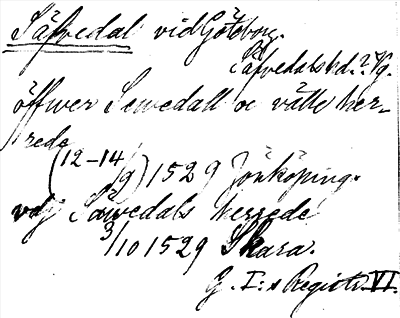 Säfvedal vid Göteborg.
Säfvedals hd. ? Vg.
öffwer Sewedall oc välle her-
rede
(12-14/9) 1529 Jönköping.
vdj Säwedals herrede
3/10 1529 Skara.
G. I:s Registr. VI.